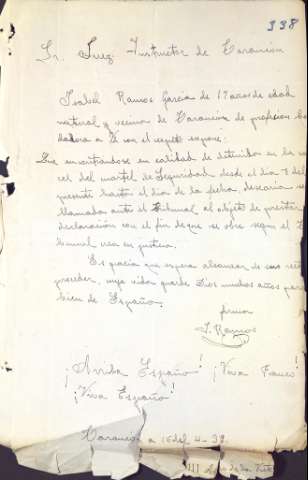 338
Sr. Juez Instructor de Tarancón
Isabel Ramos Garcia de 17 años de edad
natural y vecina de Tarancón de profesion bor
dadora a Vd con el respeto expone:
Que encontrandose en calidad de detenida en la car
cel del cuartel de Seguridad desde el dia 7 del
presente hasta el dia de la fecha, desearia ser
llamada ante el Tribunal al objeto de prestar
declaración con el fin de que se obre segun el Tri
bunal crea en justicia.
Es gracia que espera alcanzar de su recto
proceder, cuya vida guarde Dios muchos años para
bien de España.
firma
I. Ramos
¡Arriba España! ¡Viva Franco!
¡Viva España!
Tarancón a 16 del 4-39.
III Año de la